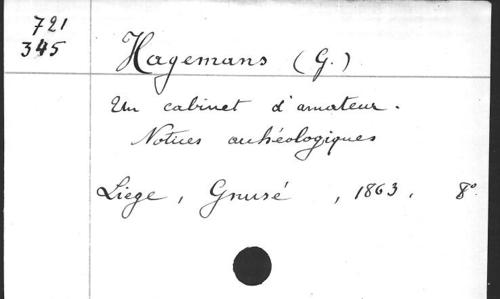 721
345
Hagemans (G.)
Un cabinet d'amateur.
Notices archéologiques
Liege, Gnusé, 1863. 8°